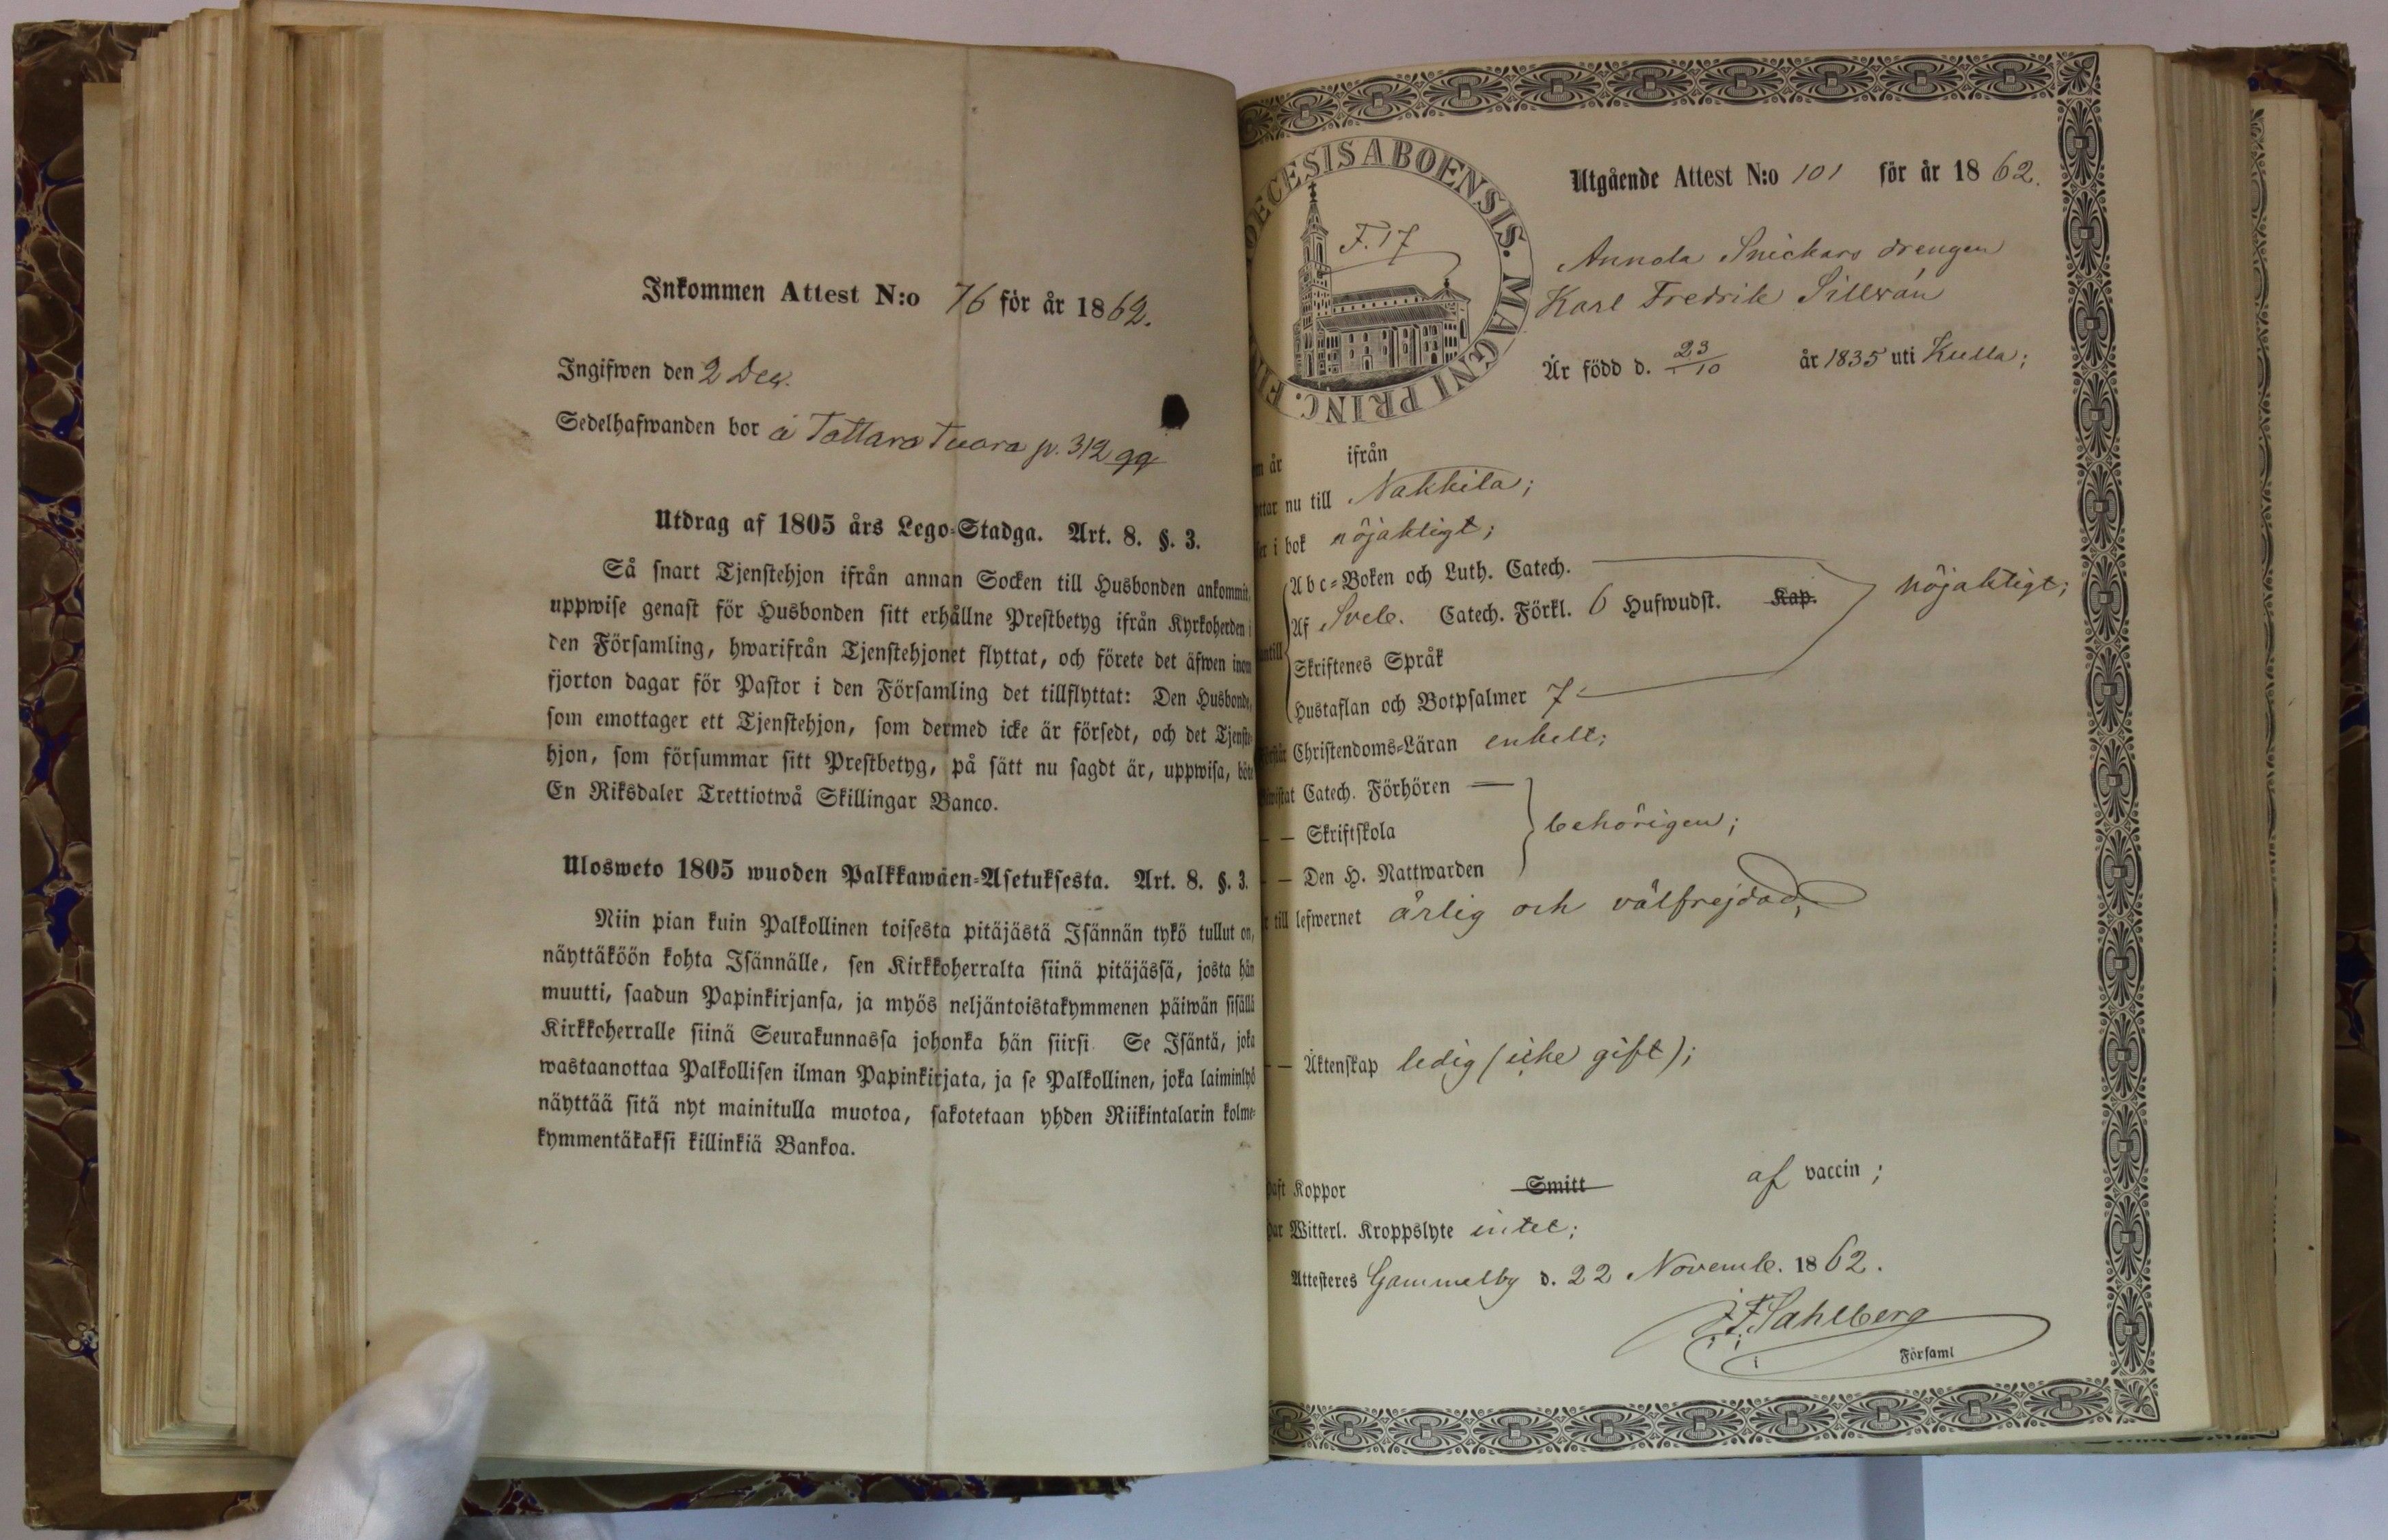 Inkommen Attest N:o 76 för år 1862.
Ingifwen den 2 Dec.
Sedelhafwanden bor å Tattara Tuora p. 312
Utdrag af 1805 års Lego-Stadga. Art. 8. §. 3.
Så snart Tjenstehjon ifrån annan Socken till Husbonden ankommit,
uppwise genast för Husbonden sitt erhållne Prestbetyg ifrån Kyrkoherden i
den Församling, hwarifrån Tjenstehjonet flyttat, och förete det äfwen inom
fjorton dagar för Pastor i den Församling det tillflyttat: Den Husbonde,
som emottager ett Tjenstehjon, som dermed icke är försedt, och det Tjenste-
hjon, som försummar sitt Prestbetyg, på sätt nu sagdt är, uppwisa, böte
En Riksdaler Trettiotwå Skillingar Banco.
Ulosweto 1805 wuoden Palkkawäen-Asetuksesta. Art. 8. §. 3.
Niin pian kuin Palkollinen toisesta pitäjästä Isännän tykö tullut on,
näyttäköön kohta Isännälle, sen Kirkkoherralta siinä pitäjässä, josta hän
muutti, saadun Papinkirjansa, ja myös neljäntoistakymmenen päiwän sisällä
Kirkkoherralle siinä Seurakunnassa johonka hän siirsi. Se Isäntä, joka
wastaanottaa Palkollisen ilman Papinkirjata, ja se Palkollinen, joka laiminlyö
näyttää sitä nyt mainitulla muotoa, sakotetaan yhden Riikintalarin kolme-
kymmentäkaksi killinkiä Bankoa.
ECESIS ABOENSIS. MAGNI PRINC.
F. 17
Utgående Attest N:o 101 för år 1862.
Annola Snickars drengen
Karl Fredrik Sillvan
Är född d. 23/10 år 1835 uti Kulla;
år ifrån
nu till Nakkila;
i bok nöjaktigt;
Abc-Boken och Luth. Catech.
Af Sveb. Catech. Förkl. 6 Hufwudst. Kap. nöjaktigt;
Skriftenes Språk
Hustaflan och Botpsalmer 7
Christendoms-Läran enkelt;
Catech. Förhören —
— Skriftskola behörigen;
— Den H. Nattwarden
till lefwernet ärlig och välfrejdad,
— Äktenskap ledig (icke gift);
Koppor Smitt af vaccin;
Witterl. Kroppslyte intet;
Attesteres Gammelby d. 22 Novemb. 1862.
J. F. Sahlberg
i Församl